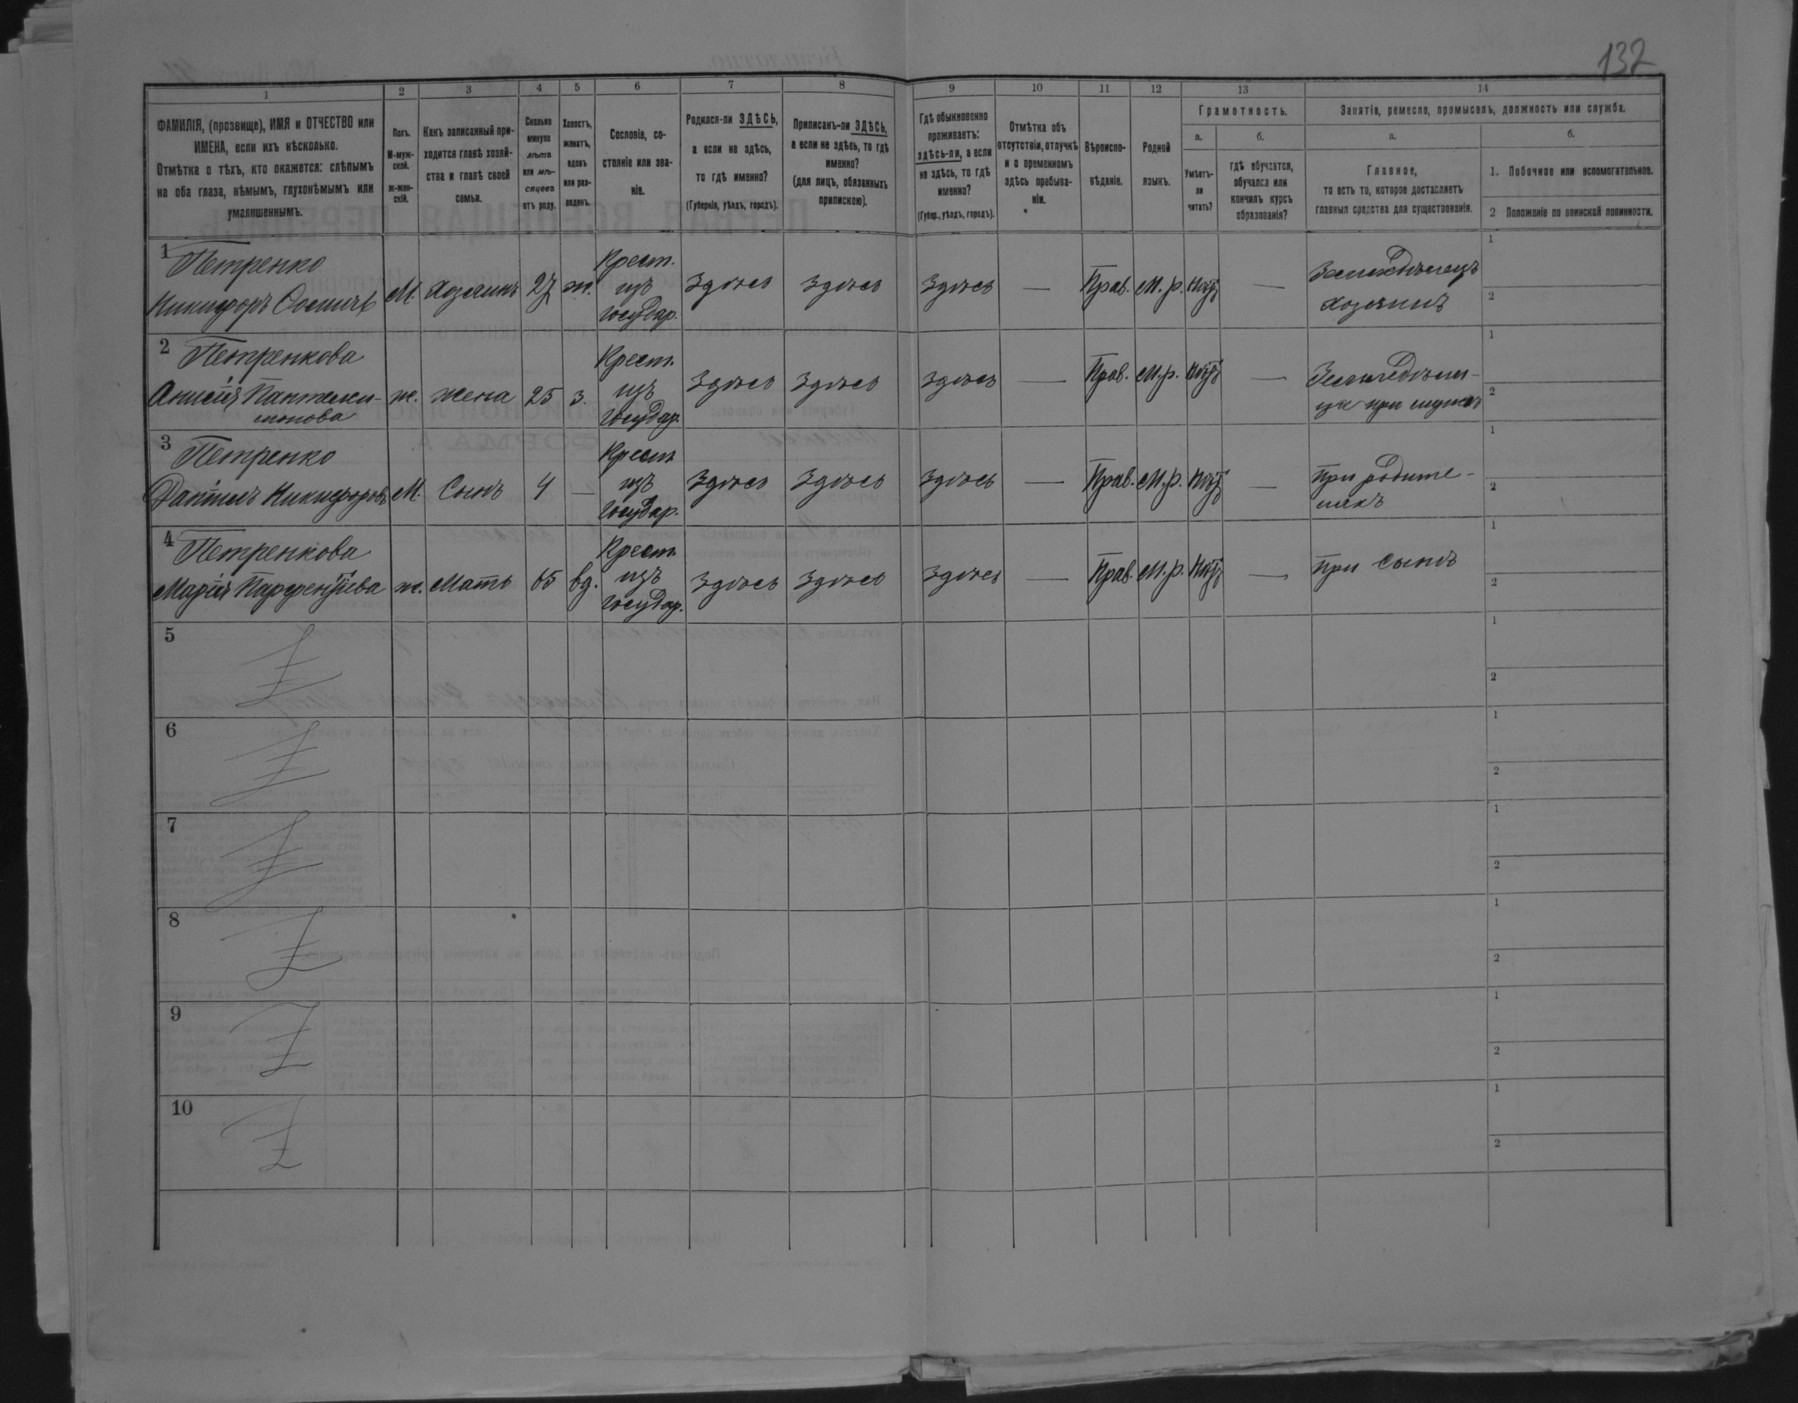 132
1 2 3 4 5 6 7 8 9 10 11 12 13 14
ФАМИЛІЯ, (прозвище), ИМЯ и ОТЧЕСТВО или
ИМЕНА, если ихъ нѣсколько.
Отмѣтка о тѣхъ, кто окажется: слѣпымъ
на оба глаза, нѣмымъ, глухонѣмымъ или
умалишеннымъ.
Полъ.
М-муж-
ской.
ж-жен-
скій.
Какъ записанный при-
ходится главѣ хозяй-
ства и главѣ своей
семьи.
Сколько
минуло
лѣтъ
или мѣ-
сяцевъ
отъ роду.
Холостъ,
женатъ,
вдовъ
или раз-
веденъ.
Сословіе, со-
стояніе или зва-
ніе.
Родился-ли ЗДѢСЬ,
а если не здѣсь,
то гдѣ именно?
(Губернія, уѣздъ, городъ).
Приписанъ-ли ЗДѢСЬ,
а если не здѣсь, то гдѣ
именно?
(для лицъ, обязанныхъ
припискою).
Гдѣ обыкновенно
проживаетъ:
здѣсь-ли, а если
не здѣсь, то гдѣ
именно?
(Губер., уѣздъ, городъ).
Отмѣтка объ
отсутствіи, отлучкѣ
и о временномъ
здѣсь пребыва-
ніи.
Вѣроиспо-
вѣданіе.
Родной
языкъ.
Грамотность.
а. б.
Умѣетъ-
ли
читать?
гдѣ обучается,
обучался или
кончилъ курсъ
образованія?
Занятіе, ремесло, промыселъ, должность или служба.
а. б.
Главное,
то есть то, которое доставляетъ
главныя средства для существованія.
1. Побочное или вспомогательное.
2 Положеніе по воинской повинности.
1 Петренко
Никифоръ М. хозяинъ 27 ж. Крест. изъ государ. Здѣсь Здѣсь Здѣсь — Прав. М.р. нѣтъ — Земледѣлецъ хозяинъ 1 2
2 Петренкова
Анисія Пантелеи-
монова ж. жена 25 з. Крест. изъ государ. Здѣсь Здѣсь Здѣсь — Прав. М.р. нѣтъ — при мужѣ 1 2
3 Петренко
Даніилъ Никифоровъ М. Сынъ 4 — Крест. изъ государ. Здѣсь Здѣсь Здѣсь — Прав. М.р. нѣтъ — При родите-
ляхъ 1 2
4 Петренкова
Марія Парфентіева ж. Мать 65 вд. Крест. изъ государ. Здѣсь Здѣсь Здѣсь — Прав. М.р. нѣтъ — При сынѣ 1 2
5 1 2
6 1 2
7 1 2
8 1 2
9 1 2
10 1 2